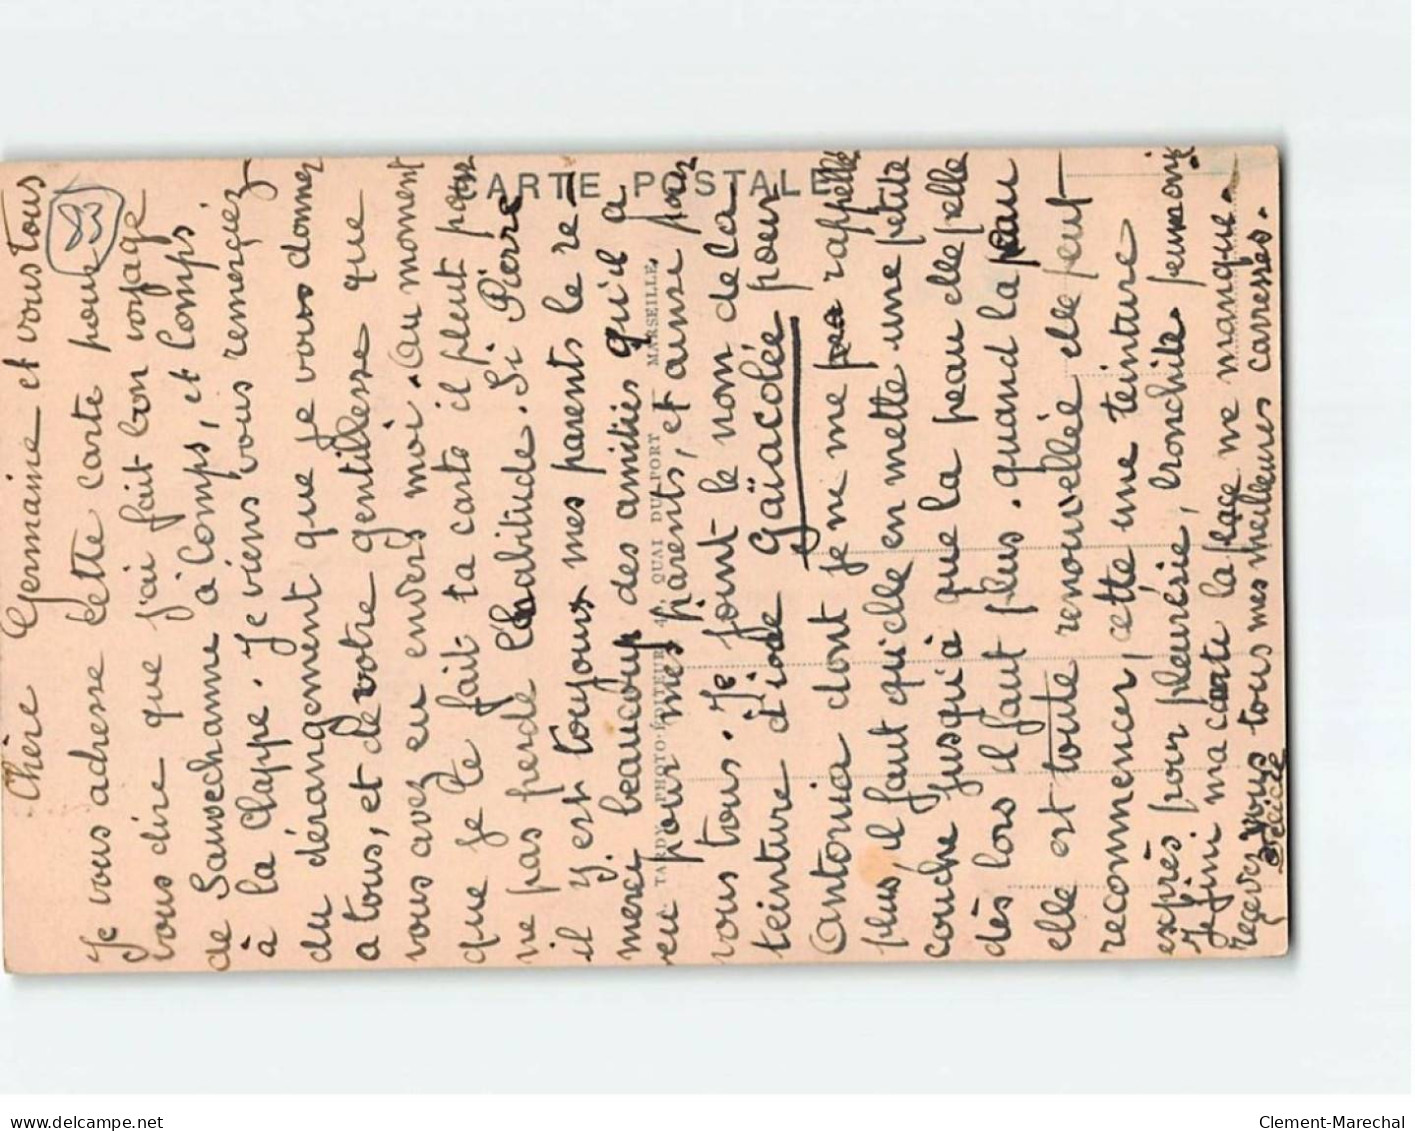 Chère Germaine et vous tous
Je vous adresse cette carte pour
vous dire que j'ai fait bon voyage
de Sauvechanne à Comps, et Comps
à la Clappe. Je viens vous remerçiez
du dérangement que je vous donner
a tous, et de votre gentillesse que
vous avez eu envers moi. Au moment
que je te fait ta carte il pleut pour
ne pas perde l'habitude. Si Pierre
il y est toujours mes parents le re-
merci beaucoup des amitiés qu'il a
eu pour mes parents, et ainse pour
vous tous. Je joint le nom de la
teinture d'iode Gaïacolée pour
Antonia dont je ne me rappelle
plus, il faut qu'elle en mette une petite
couche jusqu'à que la peau elle pelle
dès lors il faut plus. quand la peau
elle est toute renouvellée elle peut
recommencer, cette une teinture
exprès pour pleurésie, bronchite, pneumonie
Je fini ma carte la place me manque.
reçevez vous tous mes meilleures carresses.
CARTE POSTALE
TARDY PHOTO-ÉDITEUR QUAI DU PORT MARSEILLE
83
Clement-Marechal
www.delcampe.net